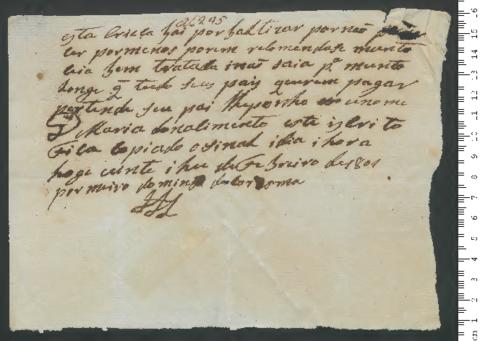 26295
esta Crieça bai por baltizar por não poder
ser por menos porem relomendase muinto
seia bem tratada i não saia pª muinto
longe q tudo seus pais querem pagar
pertende seu pai lhe ponho no nome
Maria do nalimento este isbrito
fila Copiado o sinal i dia i hora
hoge uinte i hu de Febreiro de 1801
pormeiro domingº da Coresma